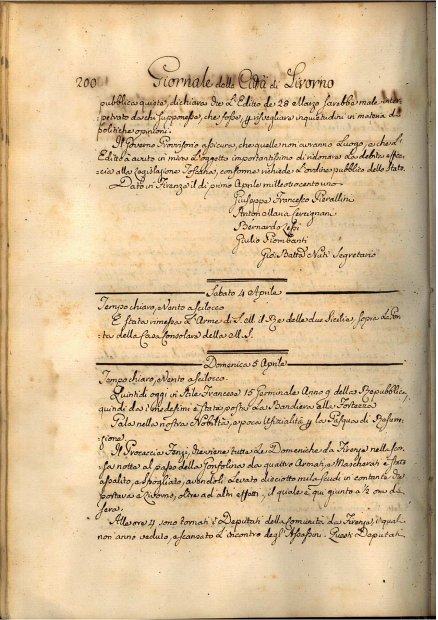 200 Giornale della Città di Livorno
pubblica quiete, dichiara che L'Editto de 28 Marzo sarebbe male inter-
petrato da chi supponesse, che fosse, p risvegliare inquietudini in materia di
Politiche opinioni.
Il Governo Provvisorio assicura, che quelle non avranno Luogo, e che L'
Editto à avuto in mira L'oggetto importantissimo di ridonare La debita effica-
cia alla Legislazione Toscana, conforme richiede L'ordine pubblico dello Stato.
Dato in Firenze il di primo Aprile milleottocento uno
Giuseppe Francesco Pierallini
Anton Maria
Bernardo Lessi
Giulio Piombanti
Gio: Batta Nuti Segretario
Sabato 4 Aprile
Tempo chiaro, Vento a scilocco
E stata rimessa L'Arme di S. M. il Re delle due Sicilie, sopra La Por-
ta della Casa Consolare della M. S.
Domenica 5 Aprile
Tempo chiaro, Vento a scilocco
Quintidi oggi in Stile Francese 15 Germinale Anno 9 della Repubblica,
quindi da i medesimi è stata posta La Bandiera alla Fortezza
Gala nella nostra Nobiltà, e poca Ufizialità p La Pasqua di Resurre-
zione.
Il Procaccia che viene tutte Le Domeniche da Firenze nella scor-
sa notte al passo della Gonfolina da quattro Armati, e Mascherati è stato
assalito, e spogliato, avendoli Levato diciotto mila scudi in contante che
portava a Livorno, oltre ad altri effetti, il quale è qui giunto a ½ ora di
sera.
Alle ore 4 sono tornati i Deputati della Comunità da Firenze, i quali
non anno veduto, e scansato L'incontro degl'Assassini. Questi Deputati